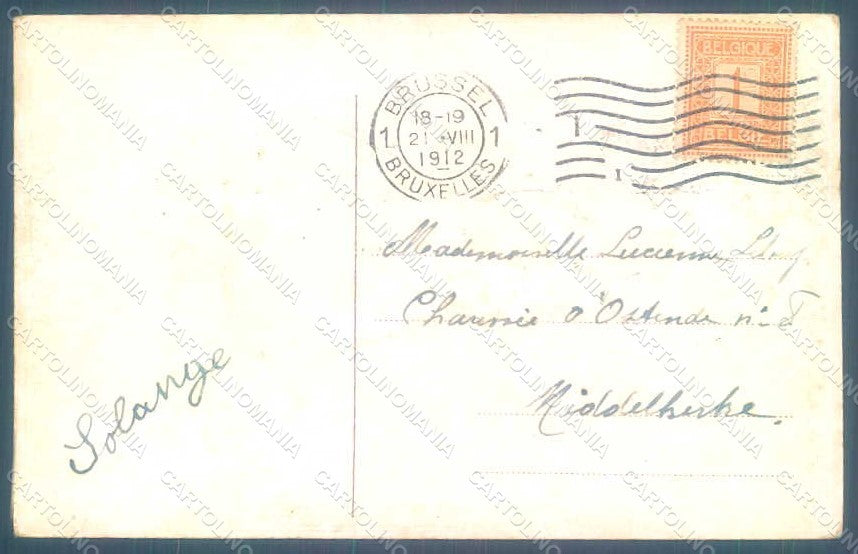 BELGIQUE
1
BELGIË
BRUSSEL
18-19
1 21 VIII 1
1912
BRUXELLES
1
Mademoiselle Lucienne
Chaussée d'Ostende n°
Middelkerke.
Solange
CARTOLINOMANIA